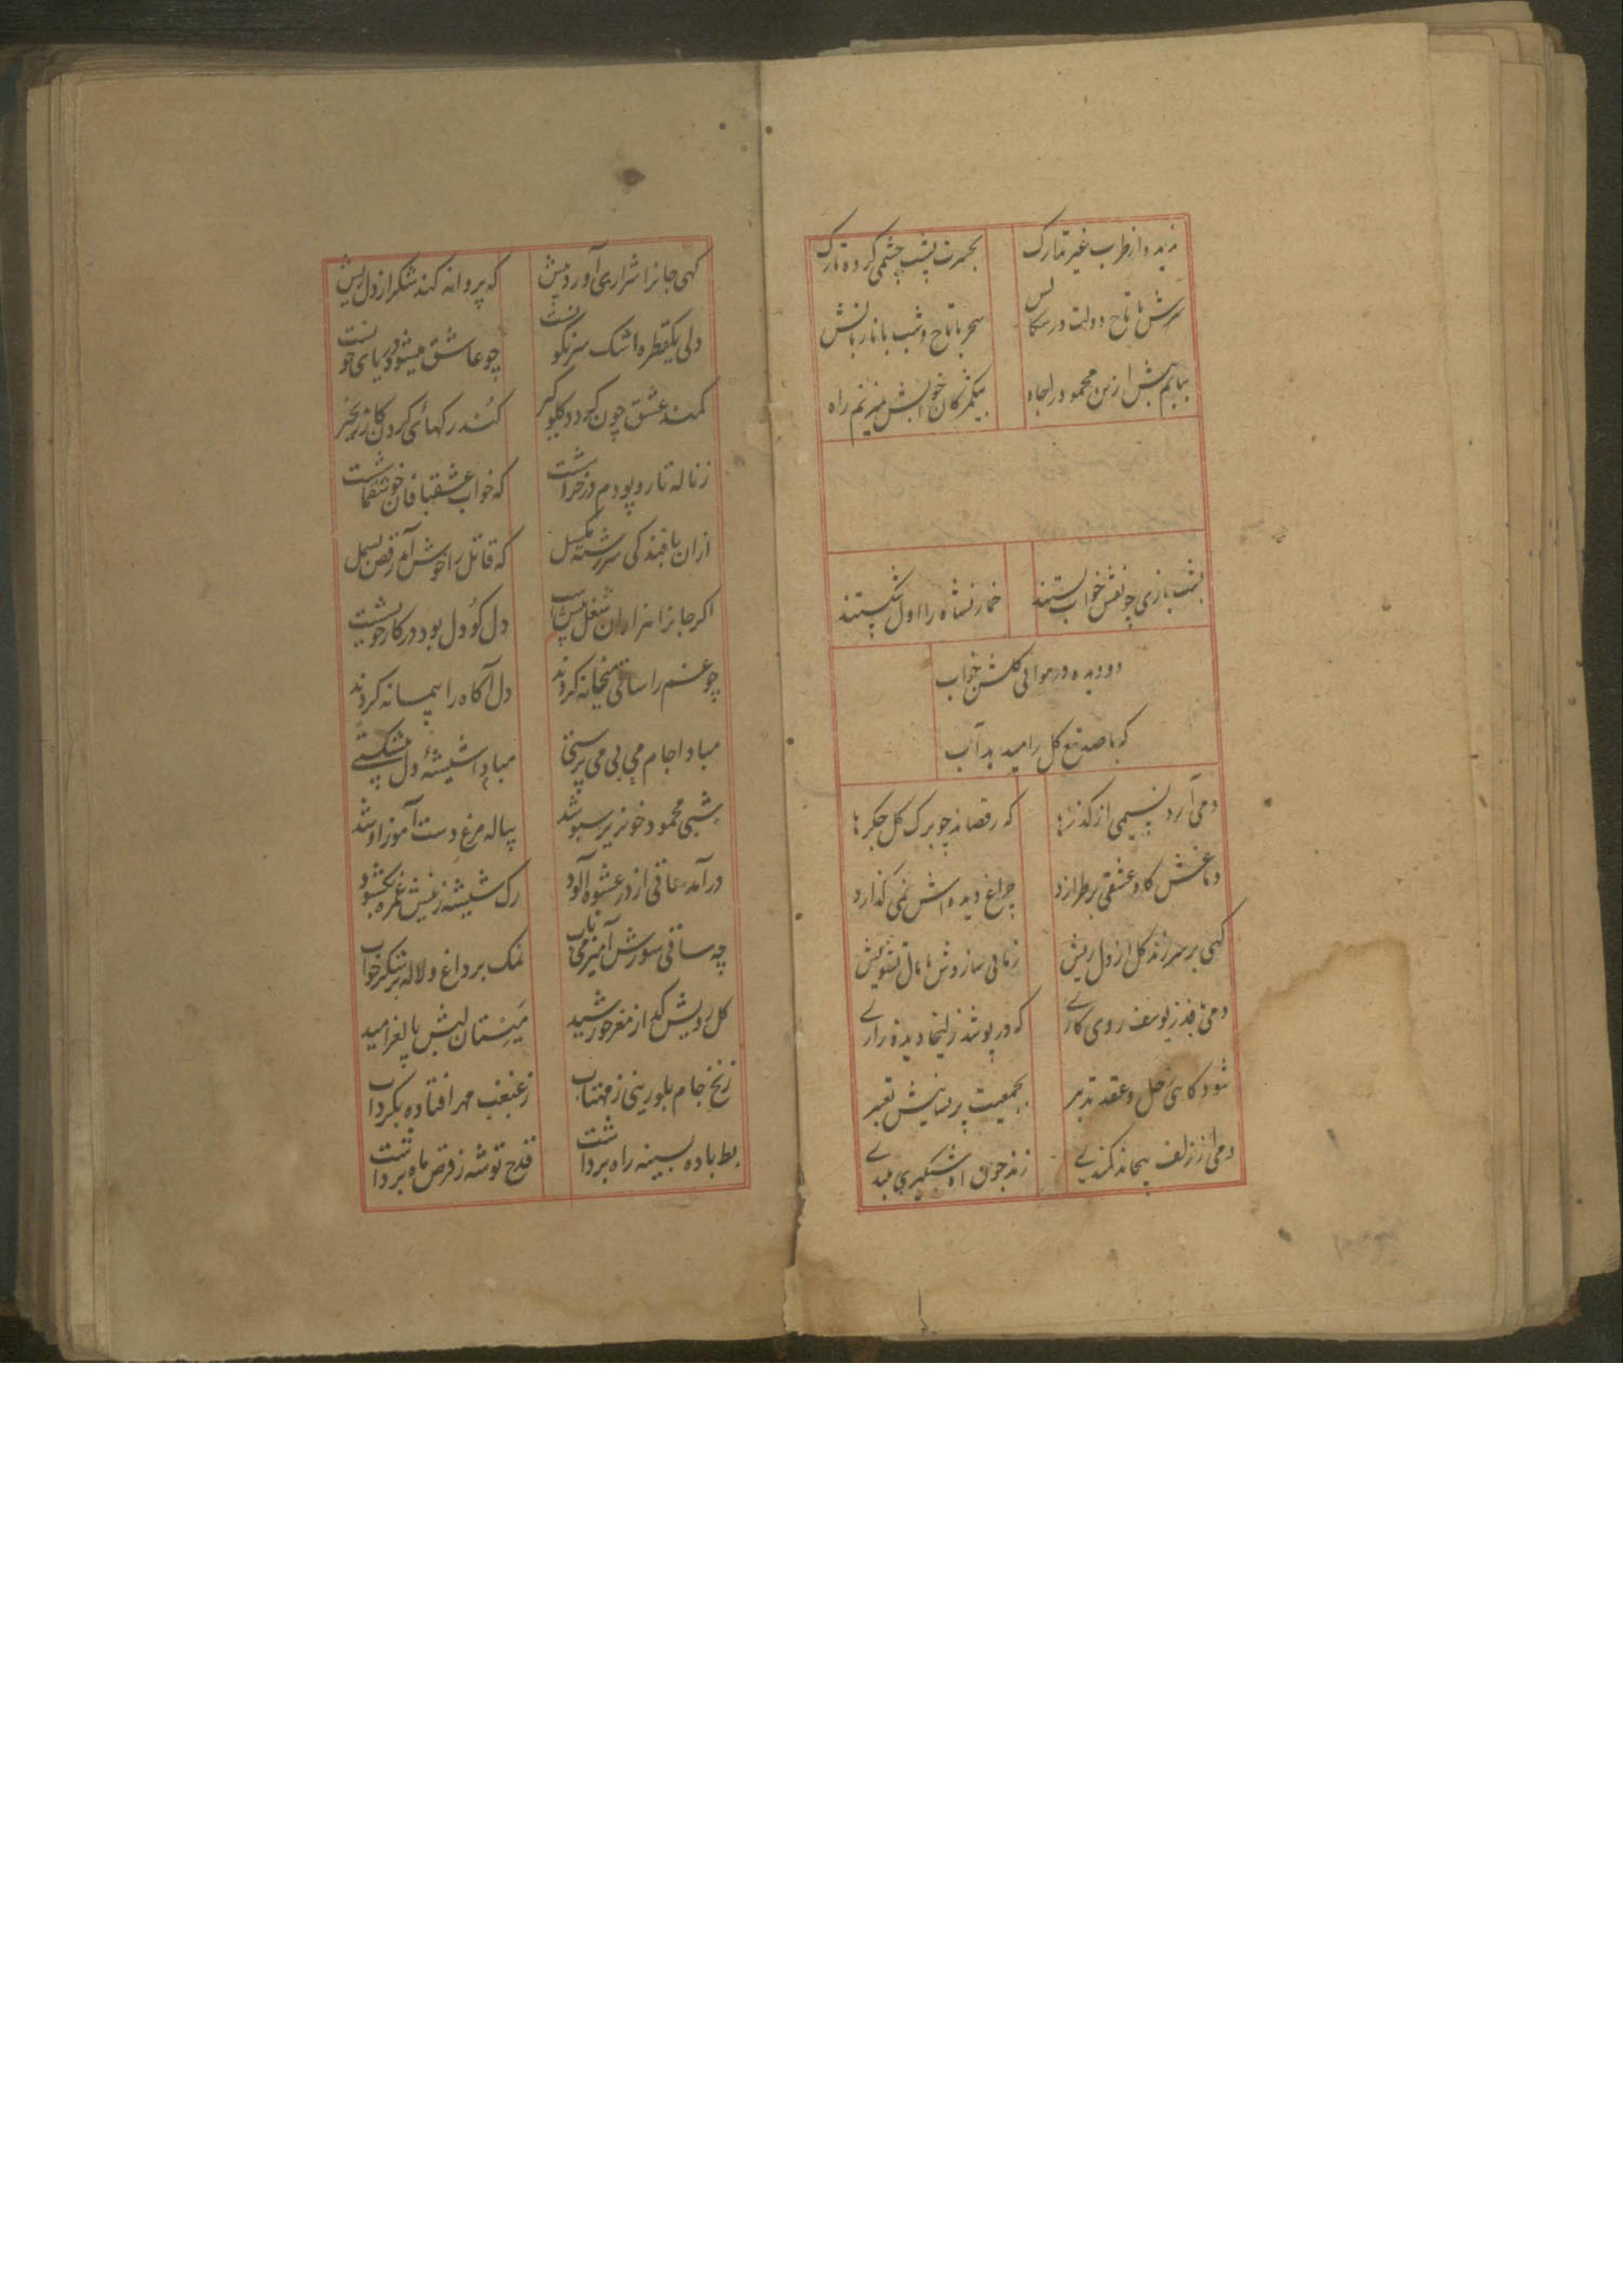 ندیده از طرب غیر تبارک بحسرت پشت چشمی کرده تارک
سرش با تاج و دولت در سحر با تاج و شب با نار بالش
بیابم پیش ازین محمود را جاه بیکمژکان خوابش میزنم راه
بشب بازی چو نقش خواب بستند خمار نشاه را اول شکستند
دو دیده در هوای کلشن خواب
که باصد تیغ کل را میدهد آب
دمی آرد نسیمی از کذرها که رقصاند چو برک کل جکرها
دماغش کاه عشقی بر طرازد چراغ دیده اش نمی کذارد
کهی بر سر زند کل از دل ریش زمانی سازدش تشویش
دمی بافد ز یوسف روی کاری که در پوشد زلیخا دیده زاری
شود کاهی حل و عقد تدبیر بجمعیت پریشانیش تعبیر
دمی از زلف کمندی زند چون شبکیری
کهی جانرا شراری آورد پیش که پروانه کند شکر از دل ریش
دلی یکقطره اشک سرنکونست چو عاشق میشود دریای خونست
کمند عشق چون کردد کلوکیر کند رکهای کردن کار زنجیر
ز ناله تار و پودم در خراشست که خواب عشقبافان خوشقماشست
ازان بافندکی سررشته مکسل که قاتل را خوش آمد رقص بسمل
اکر جانرا هزاران شغل پیشست دل کو دل بود در کار خویشست
چو غم را ساقی میخانه کردند دل آکاه را پیمانه کردند
مبادا جام می بی می پرستی مبادا شیشهٔ دل بی شکستی
شبی محمود خونریز سبو شد پیاله مرغ دست آموز او شد
درآمد ساقی از در عشوه آلود رک شیشه ز نیش غمزه بکشود
چه ساقی شورش آمیز می ناب نمک بر داغ و لاله بر شکر خواب
کل رویش کد از مغز خورشید میستان لبش پالغز امید
زنخ جام بلورینی ز مهتاب ز غبغب مهر افتاده بکرداب
بط باده بسینه راه برداشت قدح توشه ز قرص ماه برداشت